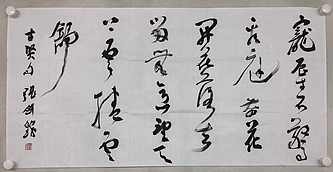 寵辱不驚
看庭前花
開花落去
留無意望天
上雲捲雲
舒
古賢句 張劍龍